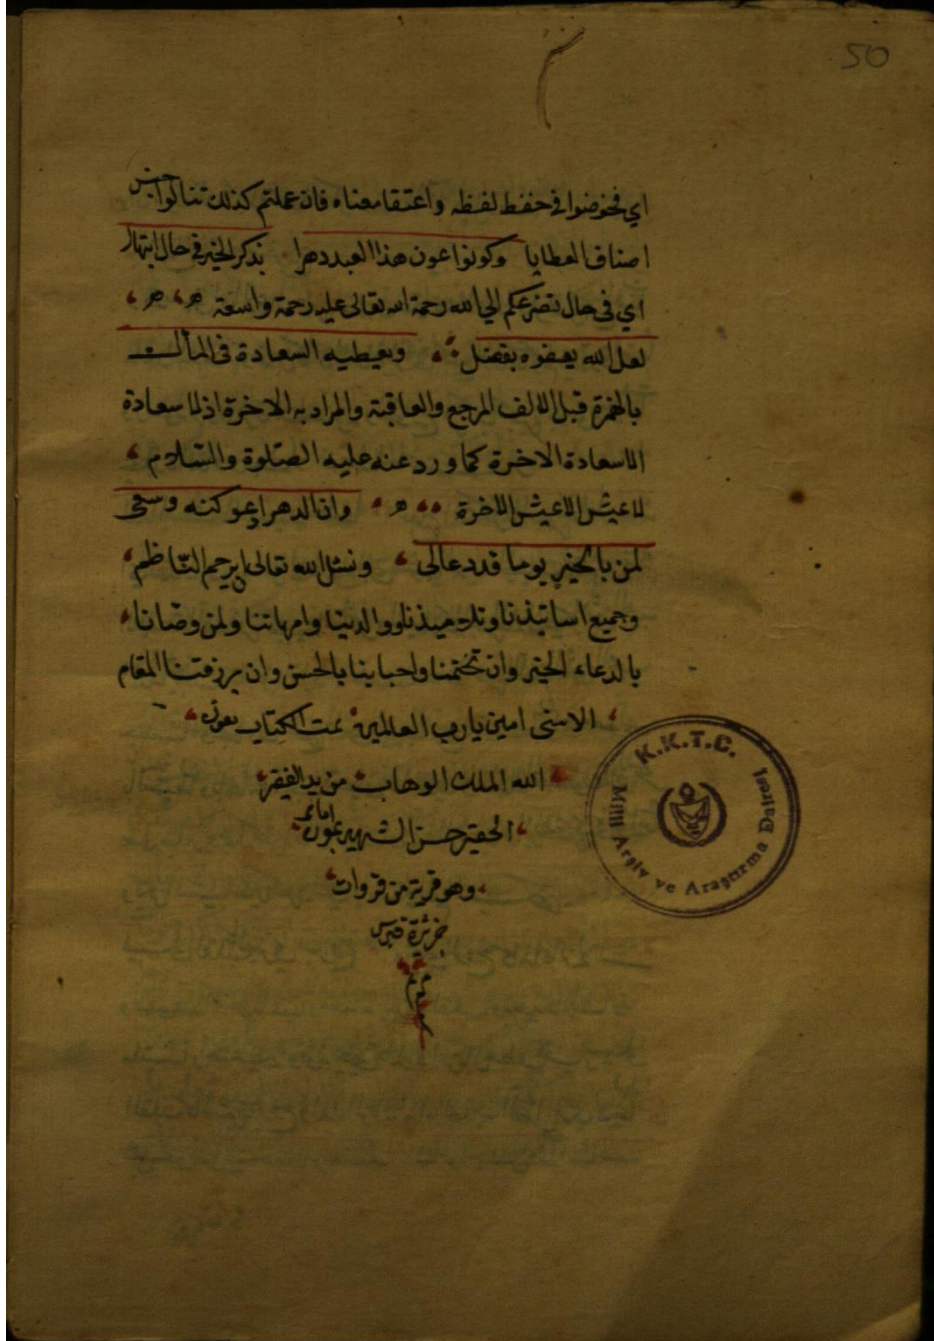 50
اي فخوضوا في حفظ لفظه واعتقا معناه فان عملتم كذلك تنالوا جنس
اصناف العطايا وكونوا عون هذا العبد دهرا بذكر الخير في حال ابتهال
اي في حال تضرعكم الي الله رحمة الله تعالى عليه رحمة واسعة م م
لعل الله يعفوه بفضل ويعطيه السعادة في المآل
بالهمزة قبل الالف المرجع والعاقبة والمراد به الاخرة اذ لا سعادة
الا سعادة الاخرة كما ورد عنه عليه الصلوة والسلام
لا عيش الا عيش الاخرة م واني الدهر ادعو كنه وسعى
لمن بالخير يوما قد دعالى ونسئل الله تعالى ان يرحم الناظم
وجميع اساتيذنا وتلاميذنا ووالدينا وامهاتنا ولمن وصانا
بالدعاء الخير وان تختمنا واحبابنا بالحسن وان يرزقنا المقام
الاسنى امين يا رب العالمين تمت الكتاب بعون
الله الملك الوهاب من يد الفقير
الحقير حسن الشهير بامام
وهو قرية من قروات
جزيرة قبرس
K.K.T.C.
Milli Arşiv ve Araştırma Dairesi